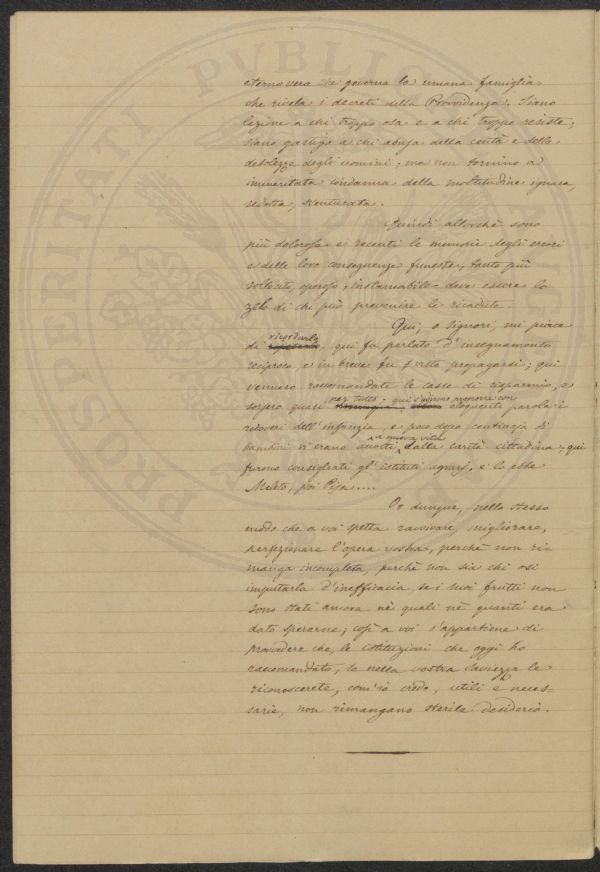 eterno vero che governa la umana famiglia
che rivela i decreti della Provvidenza. Siano
lezione a chi troppo osa e a chi troppo resiste;
siano gastigo a chi abusa della bontà e delle
debolezze degli uomini; ma non tornino a
immeritata condanna della moltitudine ignara,
sedotta, sventurata.
Quindi allorchè sono
più dolorose e recenti le memorie degli errori
e delle loro conseguenze funeste, tanto più
solerte, operoso, instancabile deve essere lo
zelo di chi può prevenire le ricadute.
Qui, o Signori, mi piace
ricordarlo
di, qui fu parlato d'insegnamento
reciproco e in breve fu visto propagarsi; qui
vennero raccomandate le casse di risparmio, e
per tutto; qui s'udirono promuovere con
sorsero quasi eloquenti parole i
ricoveri dell'infanzia, e poco dopo centinaja di
a nuova vita
bambini vi erano accolti dalla carità cittadina; qui
furono consigliati gl'istituti agrarj, e lo ebbe
Meleto, poi Pisa....
Or dunque, nello stesso
modo che a voi spetta ravvivare, migliorare,
perfezionare l'opera vostra, perchè non ri-
manga incompleta, perchè non sia chi osi
imputarla d'inefficacia, se i suoi frutti non
sono stati ancora nè quali nè quanti era
dato sperarne; così a voi s'appartiene di
provvedere che, le istituzioni che oggi ho
raccomandato, se nella vostra saviezza le
riconoscerete, com'io credo, utili e neces-
sarie, non rimangano sterile desiderio.
PROSPERITATI PVBLICAE